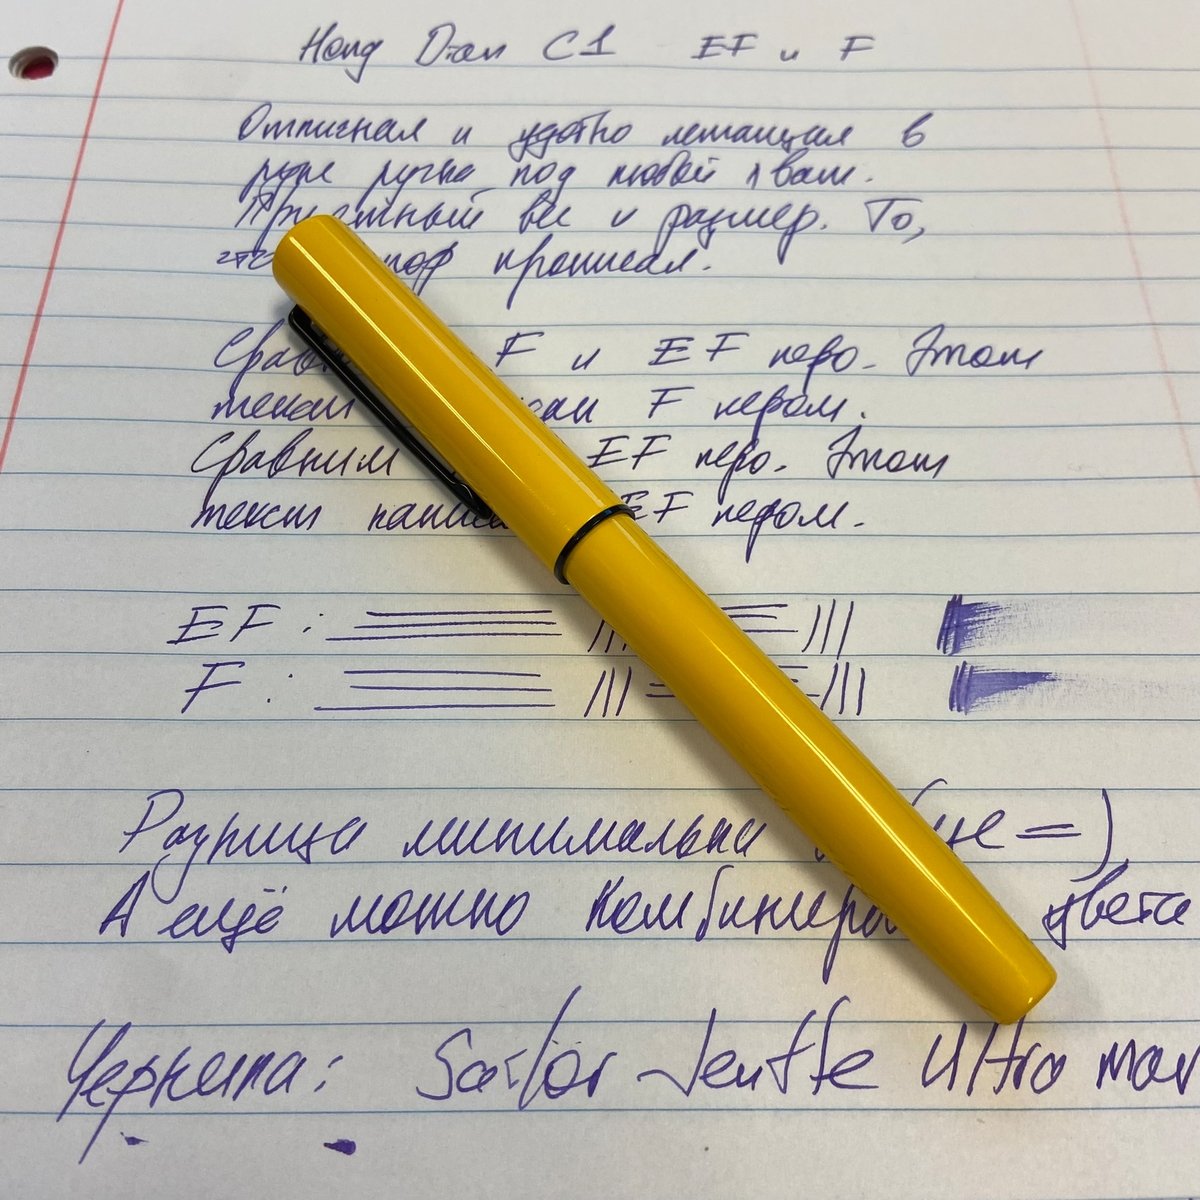 Hong Dian C1 EF и F
Отличная и удобно лежащая в
руке ручка под любой хват.
Приятный вес и размер. То,
что прописал.
F и EF перо. Этот
текст F пером.
Сравним EF перо. Этот
текст EF пером.
EF :
F :
Разница минимальна =)
А ещё можно цвета
Чернила: Sailor Jentle Ultra mar